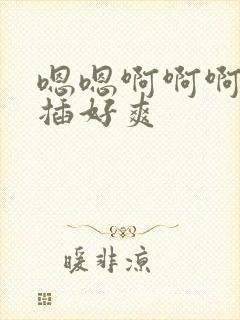 嗯嗯啊啊啊
插好爽
暖非凉